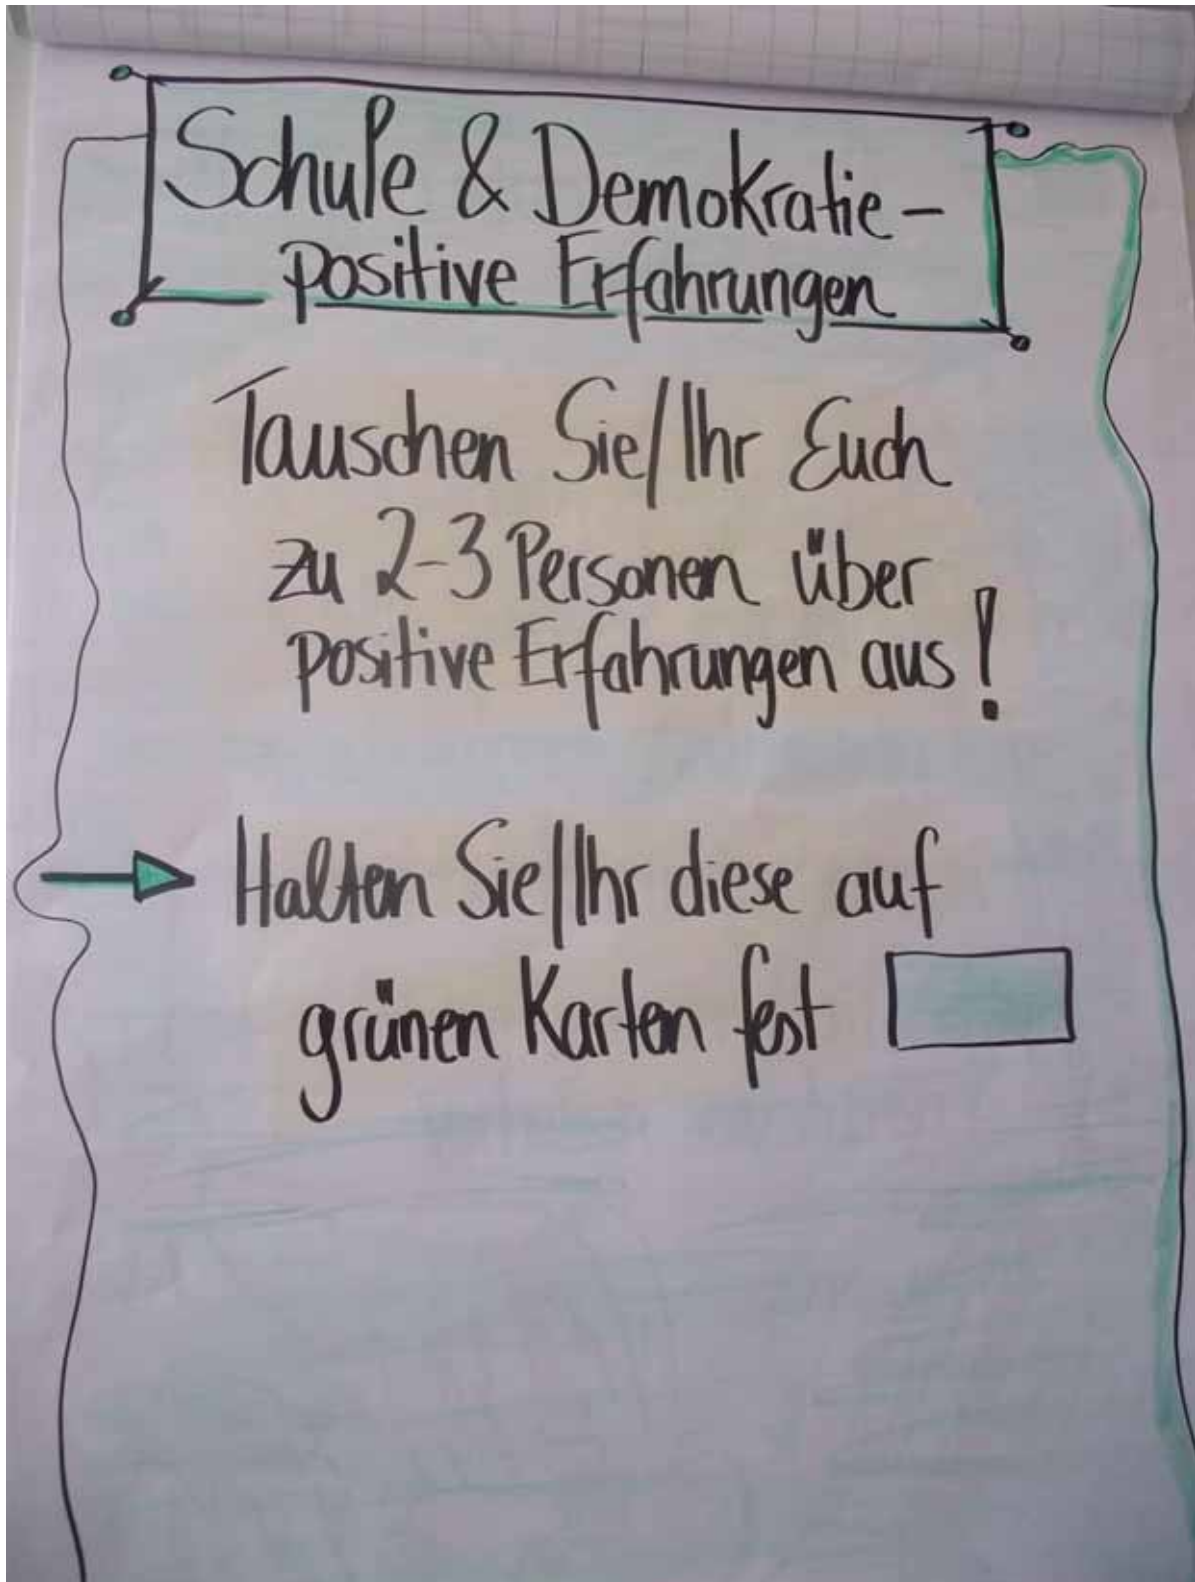 Schule & Demokratie –
positive Erfahrungen
Tauschen Sie/Ihr Euch
zu 2-3 Personen über
positive Erfahrungen aus!
Halten Sie/Ihr diese auf
grünen Karten fest